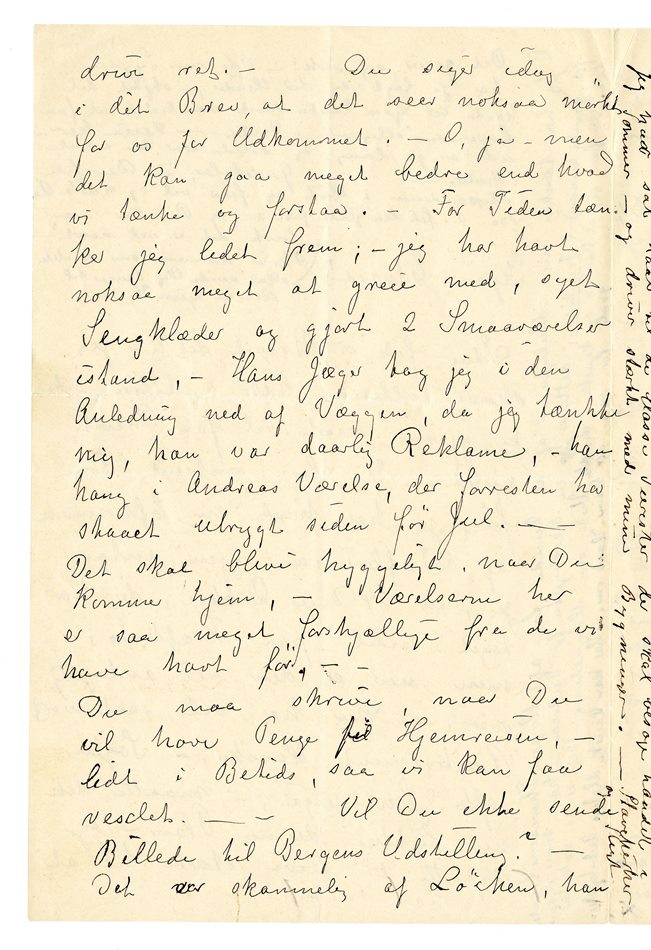 drive ret. – Du siger idag
i dit Brev, at det seer noksaa mörkt
for os for Udkommet. – O, ja – men
det kan gaa meget bedre end hvad
vi tænke og forstaa. – For Tiden tæn-
ker jeg lidet frem; – jeg har havt
noksaa meget at greie med, syet
Sengklæder og gjort 2 Smaaværelser
istand, – Hans Jæger tog jeg i den
Anledning ned af Væggen, da jeg tænkte
mig, han var daarlig Reklame, – han
hang i Andreas Værelse, der forresten har
staaet ubrygt siden før Jul. –
Det skal blive hyggeligt, naar Du
komme hjem, – Værelserne her
er saa meget forskjællige fra de vi
have havt før, – –
Du maa skrive, naar Du
vil have Penge til Hjemreisen, –
lidt i Betids, saa vi kan faa
vexlet. – – Vil Du ikke sende
Billede til Bergens Udstilling? –
Det var skammelig af Lösken, han
Jeg har sat de Turister der skal besøge landet i
Sommer – og driver stærkt med mine –
og